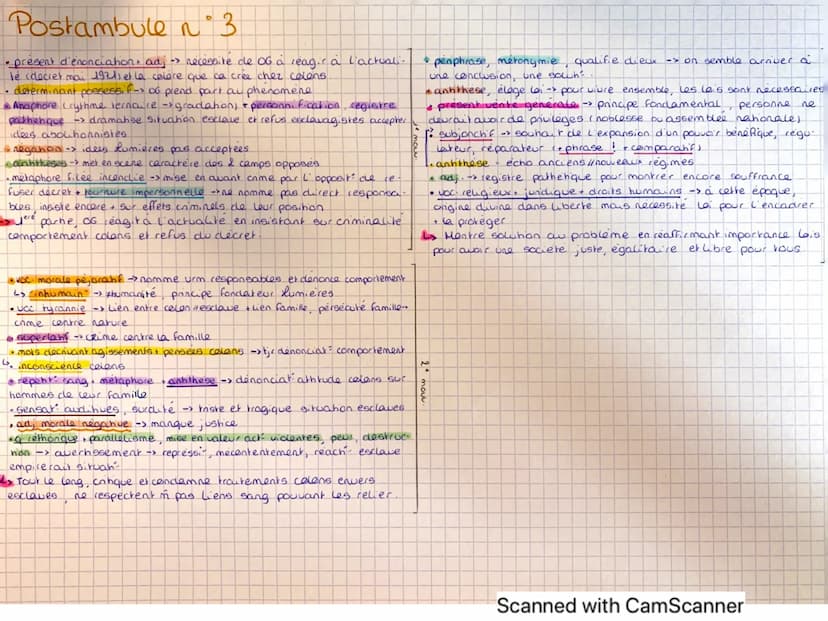 Postambule n°3
• présent d'énonciation + adj → nécessité de OG à réagir à l'actuali-
té (décret mai 1791) et la colère que ça crée chez colons
• déterminant possessif → OG prend part au phénomène
• Anaphore (rythme ternaire → gradation) + personnification, registre
pathétique → dramatise situation esclave et refus esclavagistes accepter
idées abolitionnistes
• négation → idées Lumières pas acceptées
• antithèses → met en scène caractère des 2 camps opposés
• métaphore filée incendie → mise en avant crime par l'opposit° de re-
fuser décret + tournure impersonnelle → ne nomme pas direct responsa-
bles, insiste encore + sur effets criminels de leur position
↳ 1ère partie, OG réagit à l'actualité en insistant sur criminalité
comportement colons et refus du décret.
1er mouv
• voc morale péjoratif → nomme responsables et dénonce comportement
↳ "inhumain" → ≠ humanité, principe fondateur Lumières
• voc tyrannie → lien entre colon + esclave + lien famille, persécute famille =
crime contre nature
• superlatif → crime contre la famille
• mots décrivant agissements + pensées colons → tjr dénonciat° comportement
↳ inconscience colons
• répétit° sang + métaphore + antithèse → dénonciat° attitude colons sur
hommes de leur famille
• sensat° auditives, surdité → triste et tragique situation esclaves
• adj morale négative → manque justice
• q réthorique + parallélisme, mise en valeur act° violentes, peur, destruc-
tion → avertissement → répressi°, mécontentement, réact° esclave
empirerait situat°
↳ Tout le long, critique et condamne traitements colons envers
esclaves, ne respectent m̂ pas liens sang pouvant les relier.
2e mouv.
• périphrase, métonymie, qualifie dieux → on semble arriver à
une conclusion, une solut°
• antithèse, éloge loi → pour vivre ensemble, les lois sont nécessaires
• présent vérité générale → principe fondamental, personne ne
devrait avoir de privilèges (noblesse ou assemblée nationale)
• subjonctif → souhait de l'expansion d'un pouvoir bénéfique, régu-
lateur, réparateur (+ phrase ! + comparatifs)
• antithèse → écho anciens/nouveaux régimes
• adj → registre pathétique pour montrer encore souffrance
• voc religieux + juridique + droits humains → à cette époque,
origine divine dans liberté mais nécessité loi pour l'encadrer
+ la protéger
↳ Montre solution au problème en réaffirmant importance lois
pour avoir une société juste, égalitaire et libre pour tous
Scanned with CamScanner